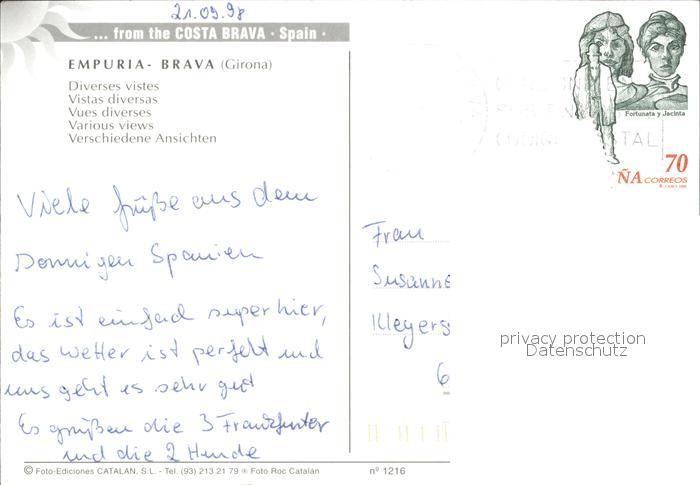 21.09.98
... from the COSTA BRAVA · Spain ·
EMPURIA- BRAVA (Girona)
Diverses vistes
Vistas diversas
Vues diverses
Various views
Verschiedene Ansichten
Viele Grüße aus dem
Sonnigen Spanien
Es ist einfach super hier,
das Wetter ist perfekt und
uns geht es sehr gut
Es grüßen die 3 Frankfurter
und die 2 Hunde
© Foto-Ediciones CATALAN, S.L. - Tel. (93) 213 21 79 ® Foto Roc Catalán
nº 1216
Fortunata y Jacinta
70
ÑA CORREOS
Frau
Susanne
6
privacy protection
Datenschutz